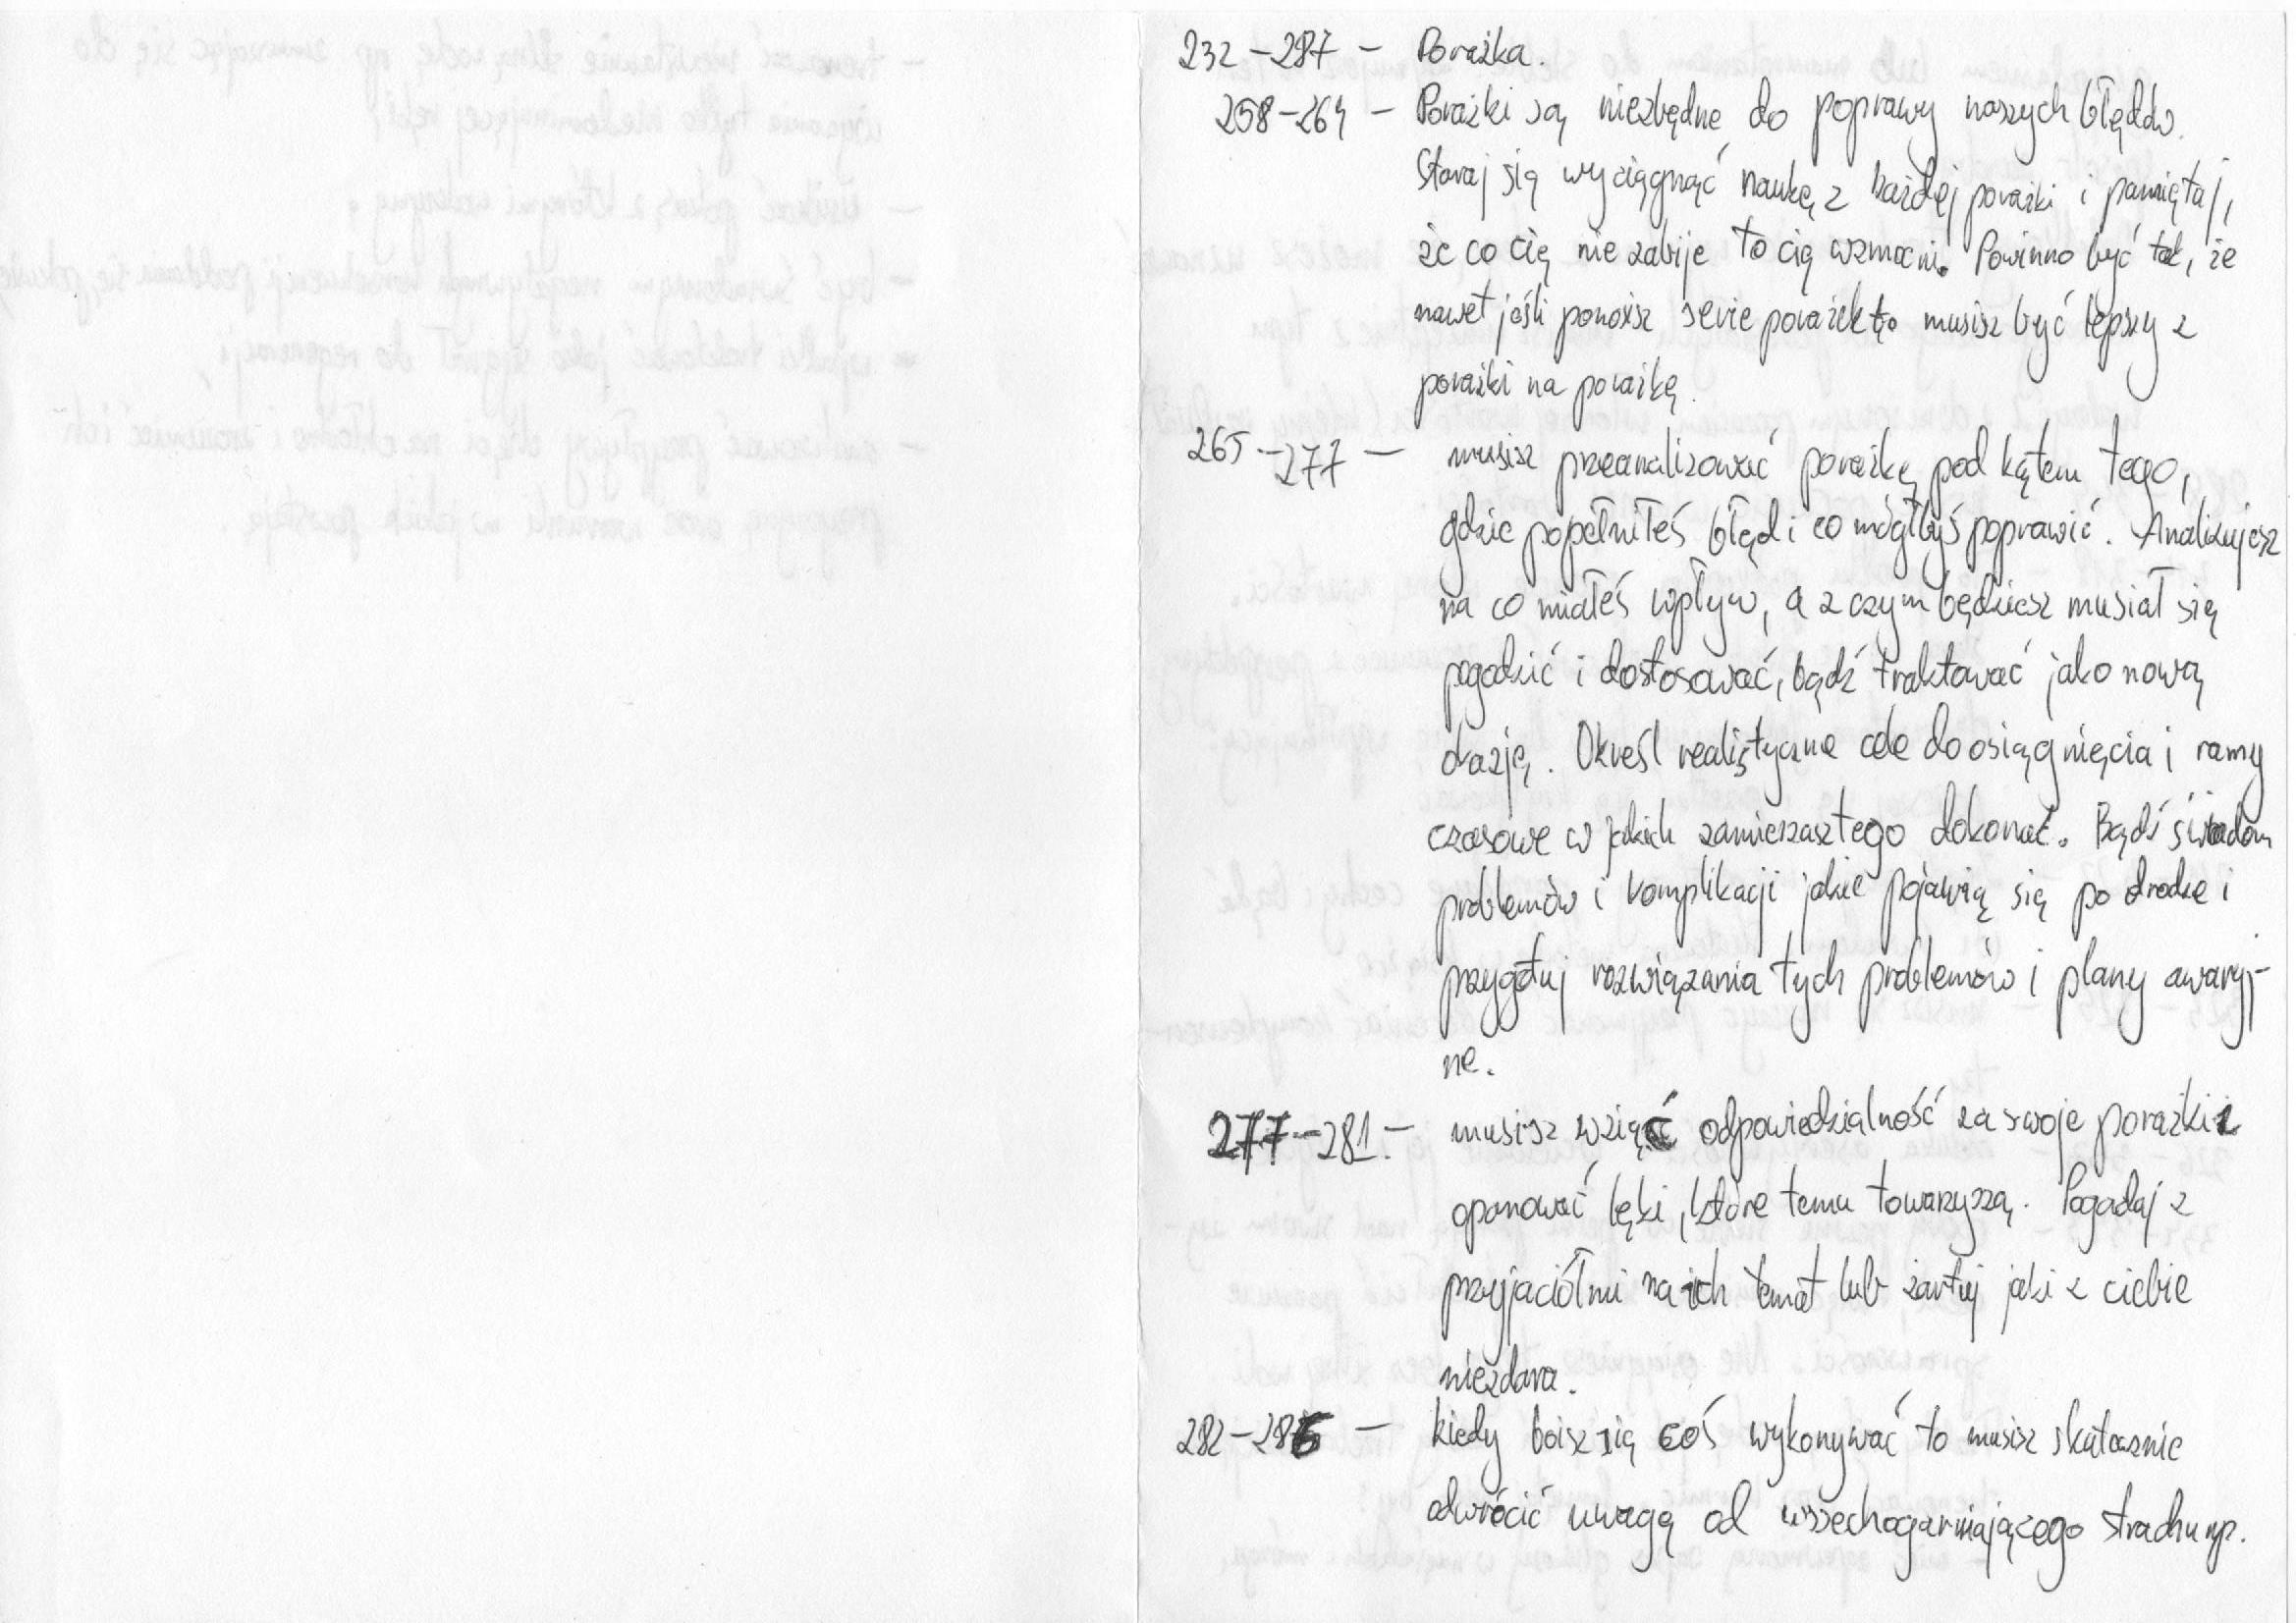 232-287 - Porażka.
258-264 - Porażki są niezbędne do poprawy naszych błędów.
Staraj się wyciągnąć naukę z każdej porażki i pamiętaj,
że co cię nie zabije to cię wzmocni. Powinno być tak, że
nawet jeśli ponosisz serie porażek to musisz być lepszy z
porażki na porażkę.
265-277 - musisz przeanalizować porażkę pod kątem tego,
gdzie popełniłeś błąd i co mógłbyś poprawić. Analizujesz
na co miałeś wpływ, a z czym będziesz musiał się
pogodzić i dostosować, bądź traktować jako nową
okazję. Określ realistyczne cele do osiągnięcia i ramy
czasowe w jakich zamierzasz tego dokonać. Bądź świadom
problemów i komplikacji jakie pojawią się po drodze i
przygotuj rozwiązania tych problemów i plany awaryj-
ne.
277-281 - musisz wziąć odpowiedzialność za swoje porażki i
opanować lęki, które temu towarzyszą. Pogadaj z
przyjaciółmi na ich temat lub żartuj jaki z ciebie
niezdara.
282-286 - kiedy boisz się coś wykonywać to musisz skutecznie
odwrócić uwagę od wszechogarniającego strachu np.